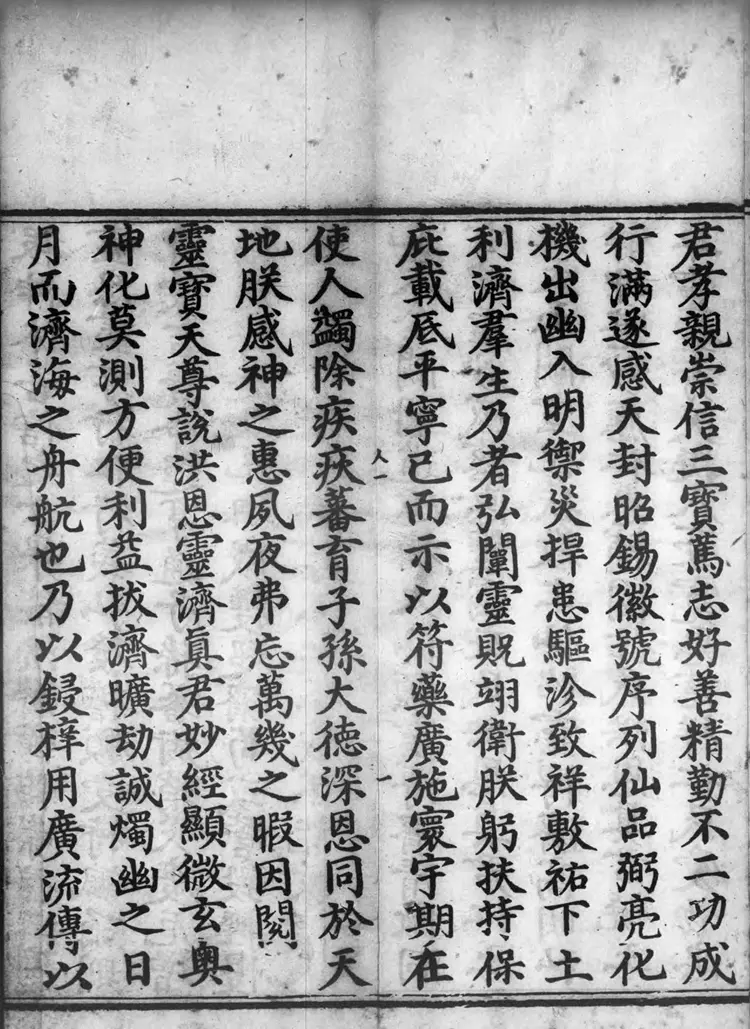 君孝親崇信三寶篤志好善精勤不二功成
行滿遂感天封昭錫徽號序列仙品弼亮化
機出幽入明禦災捍患驅沴致祥敷祐下土
利濟羣生乃者弘闡靈貺翊衛朕躬扶持保
庇載底平寧已而示以符藥廣施寰宇期在
使人蠲除疾疢蕃育子孫大德深恩同於天
地朕感神之惠夙夜弗忘萬幾之暇因閱
靈寶天尊說洪恩靈濟真君妙經顯微玄奧
神化莫測方便利益拔濟曠劫誠燭幽之日
月而濟海之舟航也乃以鋟梓用廣流傳以